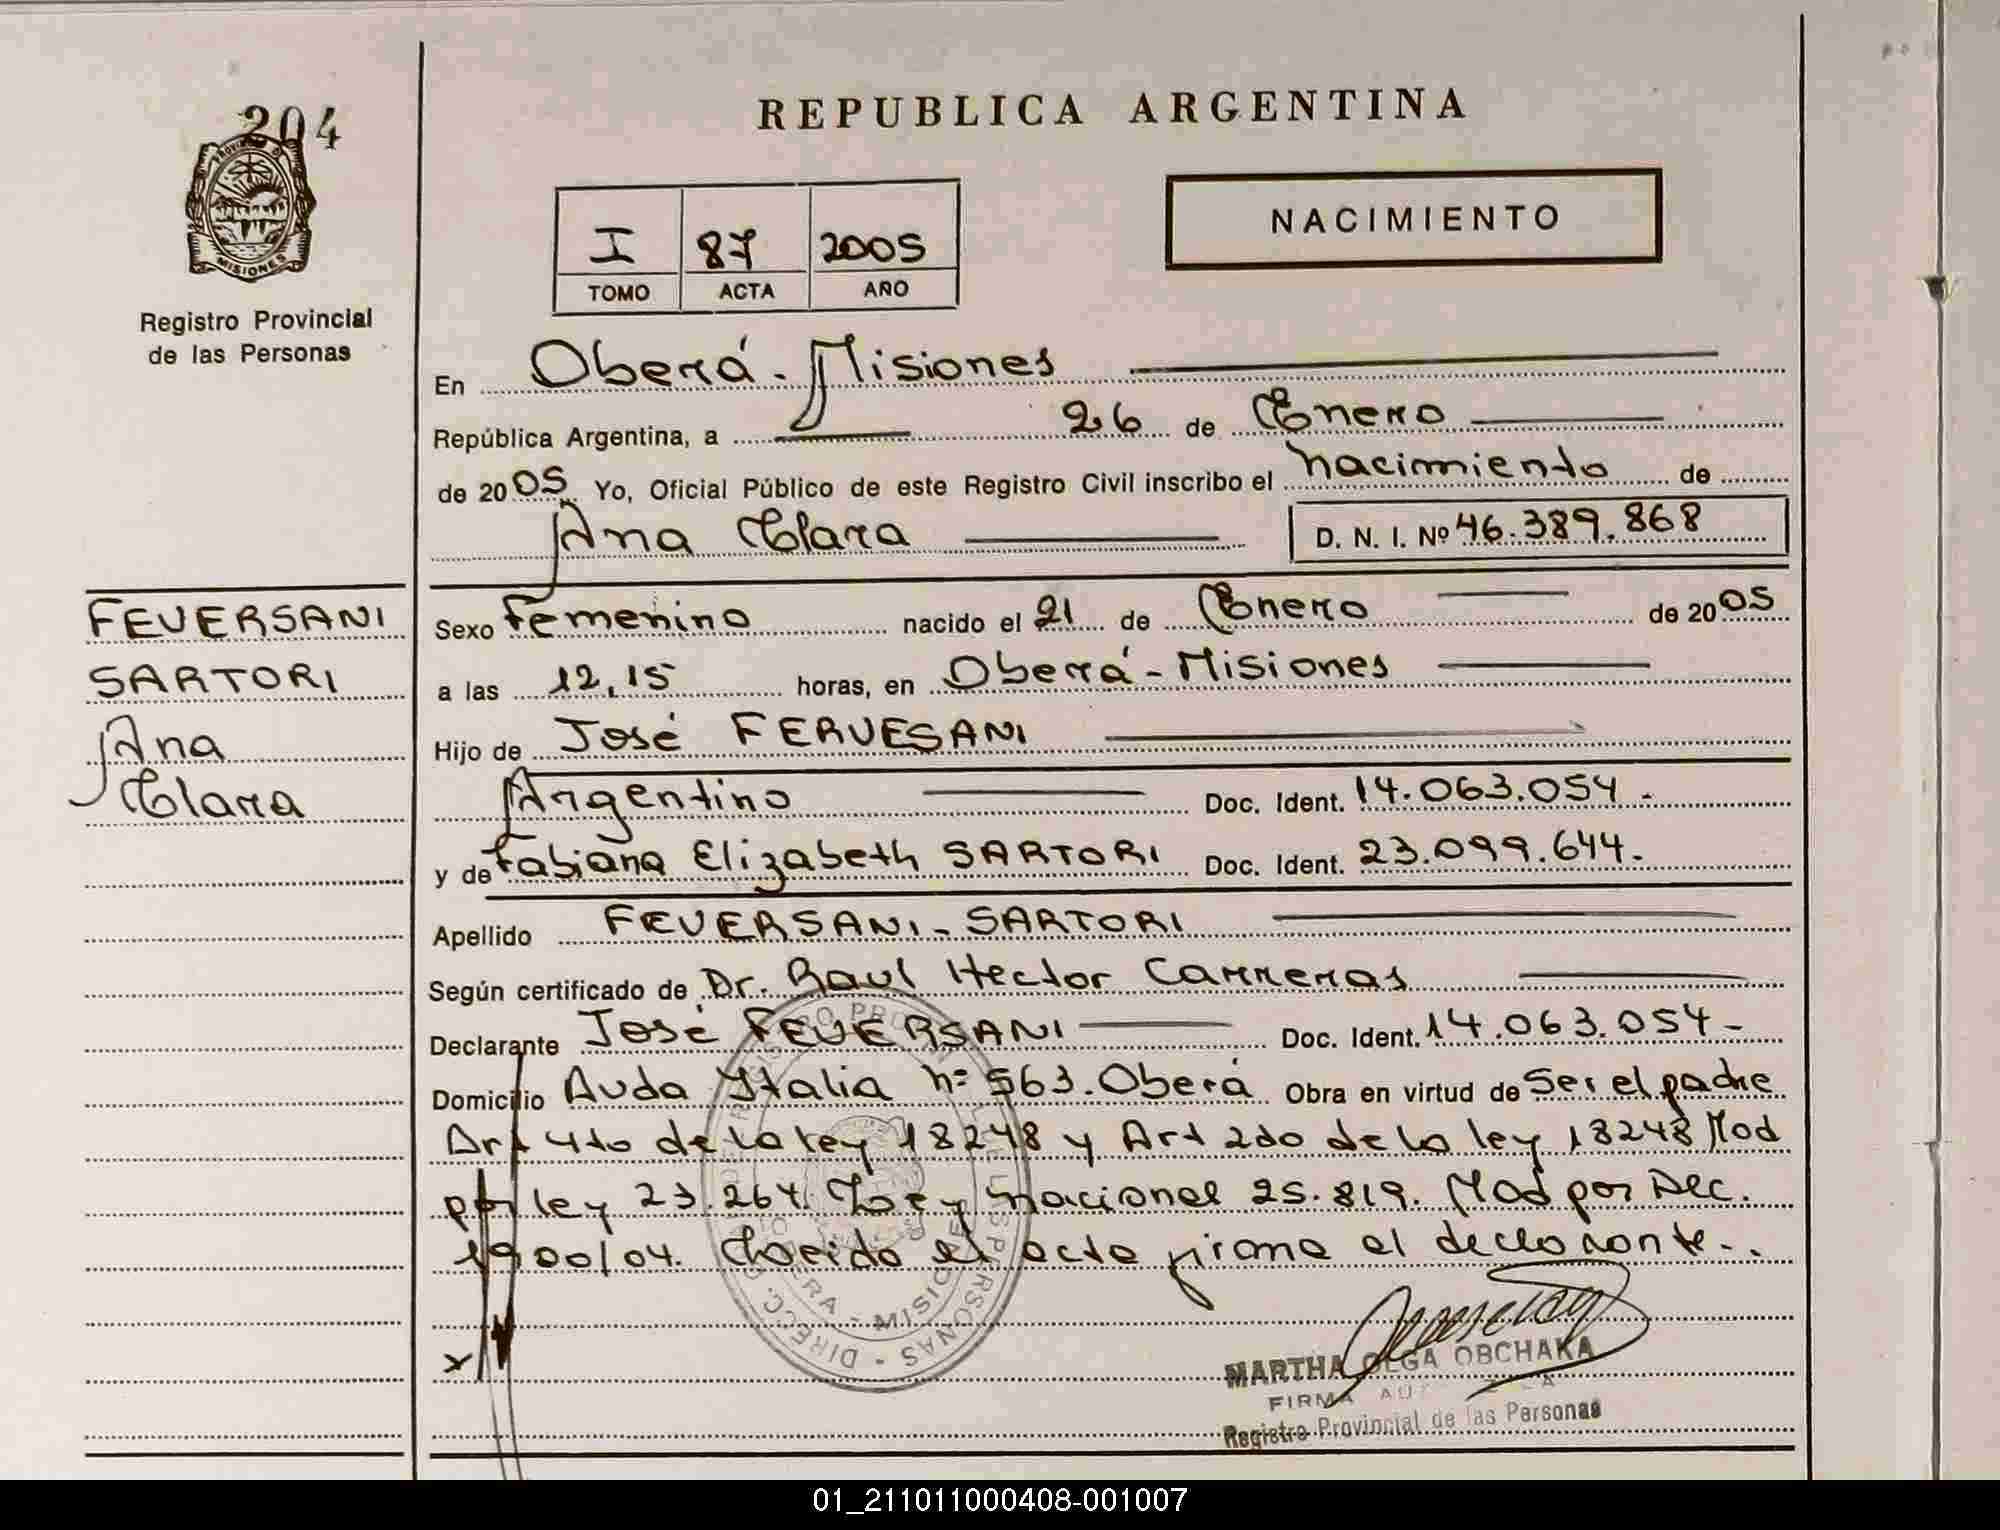 204
REPUBLICA ARGENTINA
NACIMIENTO
I 87 2005
TOMO ACTA AÑO
MISIONES
Registro Provincial
de las Personas
En Oberá - Misiones
República Argentina, a 26 de Enero
de 2005 Yo, Oficial Público de este Registro Civil inscribo el nacimiento de
Ana Clara D. N. I. Nº 46.389.868
FEVERSANI
SARTORI
Ana
Clara
Sexo Femenino nacido el 21 de Enero de 2005
a las 12,15 horas, en Oberá - Misiones
Hijo de José FERVESANI
Argentino Doc. Ident. 14.063.054.-
y de Fabiana Elizabeth SARTORI Doc. Ident. 23.099.644.-
Apellido FEVERSANI - SARTORI
Según certificado de Dr. Raul Hector Carreras
Declarante José FEVERSANI Doc. Ident. 14.063.054-
Domicilio Avda Italia nº 563. Oberá Obra en virtud de Ser el padre
Art 4to de la ley 18248 y Art 2do de la ley 18248 Mod
por ley 23.264. Ley nacional 25.819. Mod por Dec.
1900/04. Leida el acta firma el declarante..
x
DIRECC. PERSONAS - MISIONES
MARTHA OLGA OBCHAKA
FIRMA
Registro Provincial de las Personas
01_211011000408-001007